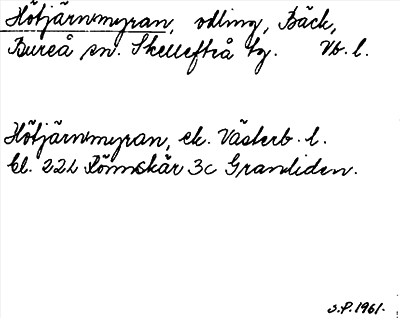 Hötjärnsmyran, odling, Bäck,
Bureå sn. Skellefteå tg. Vb. l.
Hötjärnsmyran, ek. Västerb. l.
Bl. 22L Rönnskär 3c Granliden.
S.P. 1961.